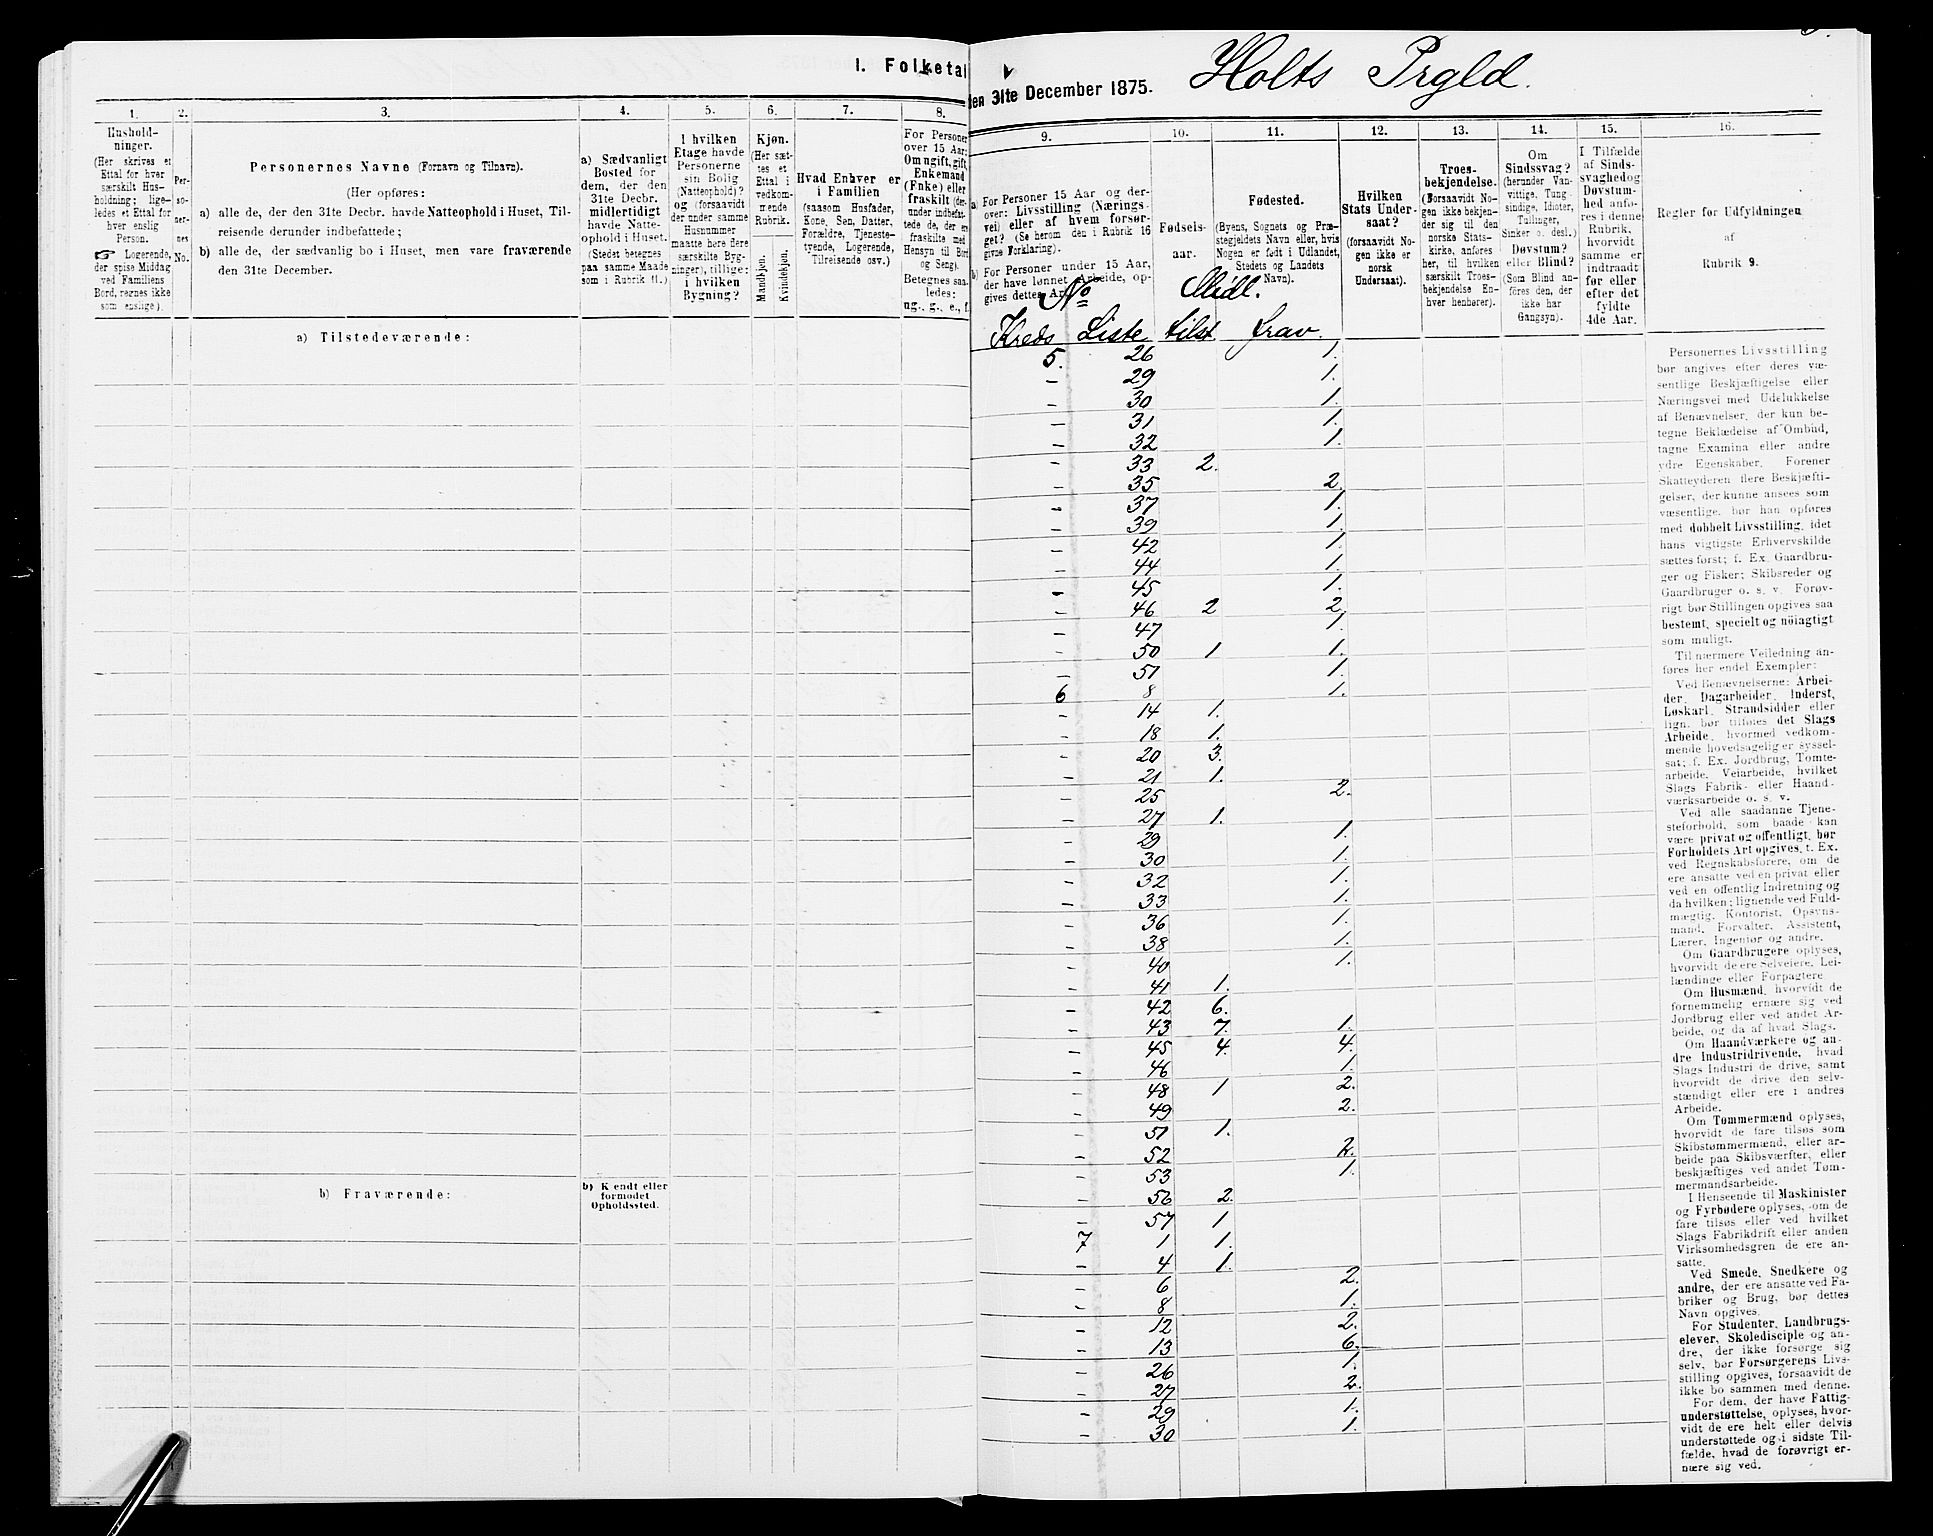 I. Folketal
den 31te December 1875.
Holts Prgld.
1.
Hushold-
ninger.
(Her skrives et
Ettal for hver
særskilt Hus-
holdning; lige-
ledes et Ettal for
hver enslig
Person.
☞ Logerende,
der spise Middag
ved Familiens
Bord, regnes ikke
som enslige).
2.
Per-
so-
ner-
nes
No.
3.
Personernes Navne (Fornavn og Tilnavn).
(Her opføres:
a) alle de, der den 31te Decbr. havde Natteophold i Huset, Til-
reisende derunder indbefattede;
b) alle de, der sædvanlig bo i Huset, men vare fraværende
den 31te December.
4.
a) Sædvanligt
Bosted for
dem, der den
31te Decbr.
midlertidigt
havde Natte-
ophold i Huset.
(Stedet betegnes
paa samme Maade
som i Rubrik 11.)
5.
I hvilken
Etage havde
Personerne
sin Bolig
(Natteophold)?
og (forsaavidt
der under samme
Husnummer
maatte høre flere
særskilte Byg-
ninger), tillige:
i hvilken
Bygning?
6.
Kjøn.
(Her sæt-
tes et
Ettal i
vedkom-
mende
Rubrik.
Mandkjøn.
Kvindekjøn.
7.
Hvad Enhver er
i Familien
(saasom Husfader,
Kone, Søn, Datter,
Forældre, Tjeneste-
tyende, Logerende,
Tilreisende osv.)
8.
For Personer
over 15 Aar:
Om ugift, gift,
Enkemand
(Enke) eller
fraskilt (der-
under indbefat-
tede de, der ere
fraskilte med
Hensyn til Bord
og Seng).
Betegnes saa-
ledes:
ug., g., e., f.
9.
a) For Personer 15 Aar og der-
over: Livsstilling (Nærings-
vei) eller af hvem forsør-
get? (Se herom den i Rubrik 16
givne Forklaring).
b) For Personer under 15 Aar,
der have lønnet Arbeide, op-
gives dettes Art.
10.
Fødsels-
aar.
11.
Fødested.
(Byens, Sognets og Præ-
stegjeldets Navn eller, hvis
Nogen er født i Udlandet,
Stedets og Landets
Navn).
12.
Hvilken
Stats Under-
saat?
(forsaavidt No-
gen ikke er
norsk
Undersaat).
13.
Troes-
bekjendelse.
(Forsaavidt No-
gen ikke bekjen-
der sig til den
norske Stats-
kirke, anføres
her, til hvilken
særskilt Troes-
bekjendelse En-
hver henhører).
14.
Om
Sindssvag?
(herunder Van-
vittige, Tung-
sindige, Idioter,
Tullinger,
Sinker o. desl.)
Døvstum?
eller Blind?
(Som Blind an-
føres den, der
ikke har
Gangsyn).
15.
I Tilfælde
af Sinds-
svaghed og
Døvstum-
hed anfø-
res i denne
Rubrik,
hvorvidt
samme er
indtraadt
før eller
efter det
fyldte
4de Aar.
16.
Regler for Udfyldningen
af
Rubrik 9.
No Midl.
Kreds Liste tilst frav.
a) Tilstedeværende:
5. 26 1.
– 29 1.
– 30 1.
– 31 1.
– 32 1.
– 33 2.
– 35 2.
– 37 1.
– 39 1.
– 42 1.
– 44 1.
– 45 1.
– 46 2 2.
– 47 1.
– 50 1 1.
– 51 1.
6 8 1.
– 14 1.
– 18 1.
– 20 3.
– 21 1.
– 25 2.
– 27 1.
– 29 1.
– 30 1.
– 32 1.
– 33 1.
– 36 1.
– 38 1.
– 40 1.
– 41 1.
– 42 6.
– 43 7. 1.
– 45 4. 4.
– 46 1.
– 48 1 2.
– 49 2.
– 51 1.
– 52 2.
– 53 1.
– 56 2.
– 57 1
7 1 1.
– 4 1.
– 6 2.
– 8 1.
– 12 2.
– 13 6.
– 26 1.
– 27 2.
– 29 1.
– 30 1.
b) Fraværende:
b) Kjendt eller
formodet
Opholdssted.
Personernes Livsstilling
bør angives efter deres væ-
sentlige Beskjæftigelse eller
Næringsvei med Udelukkelse
af Benævnelser, der kun be-
tegne Beklædelse af Ombud,
tagne Examina eller andre
ydre Egenskaber. Forener
Skatteyderen flere Beskjæfti-
gelser, der kunne ansees som
væsentlige, bør han opføres
med dobbelt Livsstilling, idet
hans vigtigste Erhvervskilde
sættes først; f. Ex. Gaardbru-
ger og Fisker; Skibsreder og
Gaardbruger o. s. v. Forøv-
rigt bør Stillingen opgives saa
bestemt, specielt og nöiagtigt
som muligt.
Til nærmere Veiledning an-
føres her endel Exempler:
Ved Benævnelserne: Arbei-
der, Dagarbeider, Inderst,
Løskarl, Strandsidder eller
lign. bør tilføies det Slags
Arbeide, hvormed vedkom-
mende hovedsagelig er syssel-
sat; f. Ex. Jordbrug, Tomte-
arbeide, Veiarbeide, hvilket
Slags Fabrik- eller Haand-
værksarbeide o. s. v.
Ved alle saadanne Tjene-
steforhold, som baade kan
være privat og offentligt, bør
Forholdets Art opgives, f. Ex.
ved Regnskabsførere, om de
ere ansatte ved en privat eller
ved en offentlig Indretning og
da hvilken; lignende ved Fuld-
mægtig, Kontorist, Opsyns-
mand, Forvalter, Assistent,
Lærer, Ingeniør og andre.
Om Gaardbrugere oplyses,
hvorvidt de ere Selveiere, Lei-
lændinge eller Forpagtere.
Om Husmænd, hvorvidt de
fornemmelig ernære sig ved
Jordbrug eller ved andet Ar-
beide, og da af hvad Slags.
Om Haandværkere og an-
dre Industridrivende, hvad
Slags Industri de drive, samt
hvorvidt de drive den selv-
stændigt eller ere i andres
Arbeide.
Om Tømmermænd oplyses,
hvorvidt de fare tilsøs som
Skibstømmermænd, eller ar-
beide paa Skibsværfter, eller
beskjæftiges ved andet Tøm-
mermandsarbeide.
I Henseende til Maskinister
og Fyrbødere oplyses, om de
fare tilsøs eller ved hvilket
Slags Fabrikdrift eller anden
Virksomhedsgren de ere an-
satte.
Ved Smede, Snedkere og
andre, der ere ansatte ved Fa-
briker og Brug, bør dettes
Navn opgives.
For Studenter, Landbrugs-
elever, Skoledisciple og an-
dre, der ikke forsørge sig
selv, bør Forsørgerens Livs-
stilling opgives, forsaavidt de
ikke bo sammen med denne.
For dem, der have Fattig-
understøttelse, oplyses, hvor-
vidt de ere helt eller delvis
understøttede og i sidste Til-
fælde, hvad de forøvrigt er-
nære sig ved.